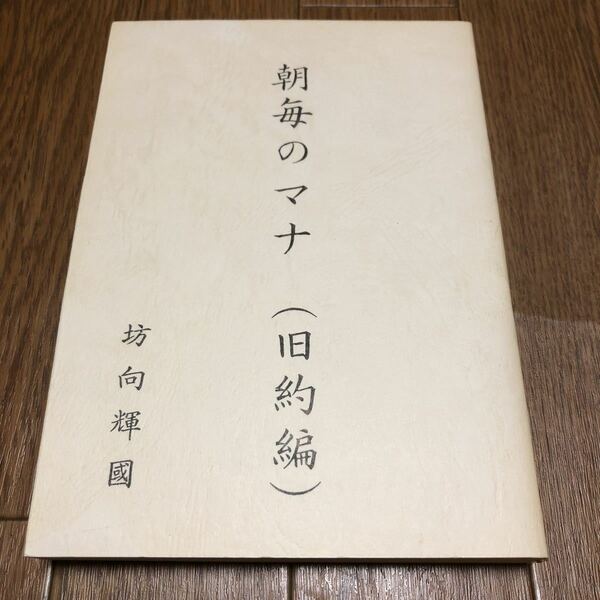 朝毎のマナ（旧約編）
坊向輝國